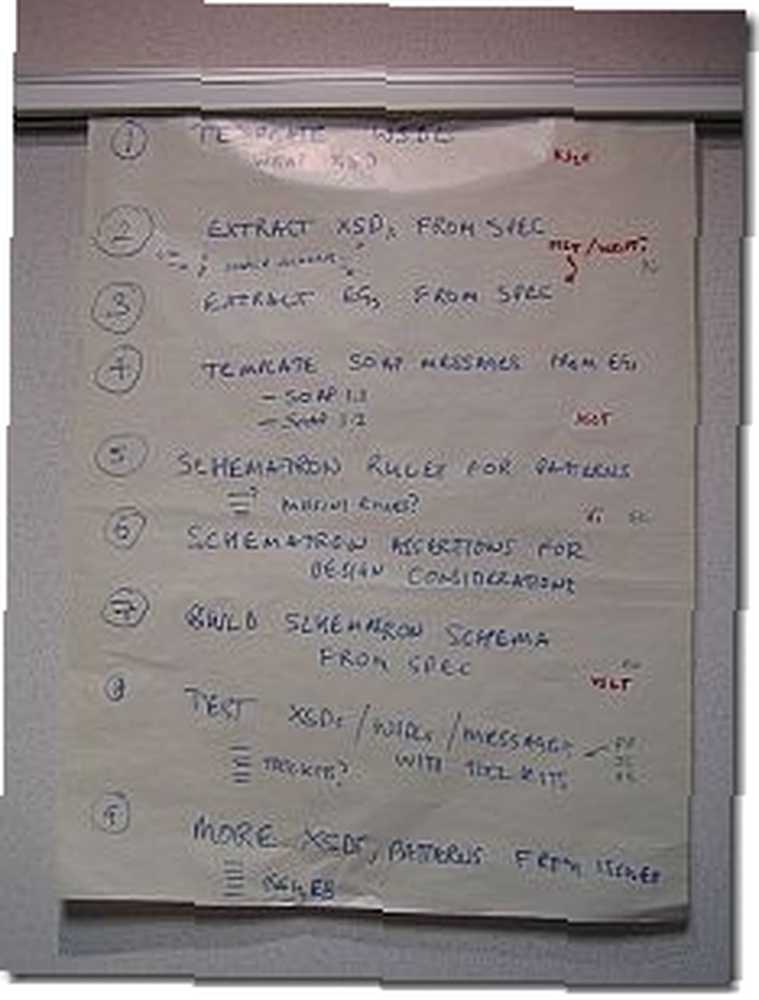 1 TEMPLATE WSDL
WHAT XSD?
XSLT
2 EXTRACT XSDs FROM SPEC
3 EXTRACT EGs FROM SPEC
4 TEMPLATE SOAP MESSAGES FROM EGs
- SOAP 1.1
- SOAP 1.2
XSLT
5 SCHEMATRON RULES FOR PATTERNS
MISSING RULES?
6 SCHEMATRON ASSERTIONS FOR
DESIGN CONSIDERATIONS
7 BUILD SCHEMATRON SCHEMA
FROM SPEC
XSLT
8 TEST XSDs / WSDLs / MESSAGES
WITH TOOLKITS
TOOLKITS?
9 MORE XSDs, PATTERNS FROM ISSUES
ISSUES